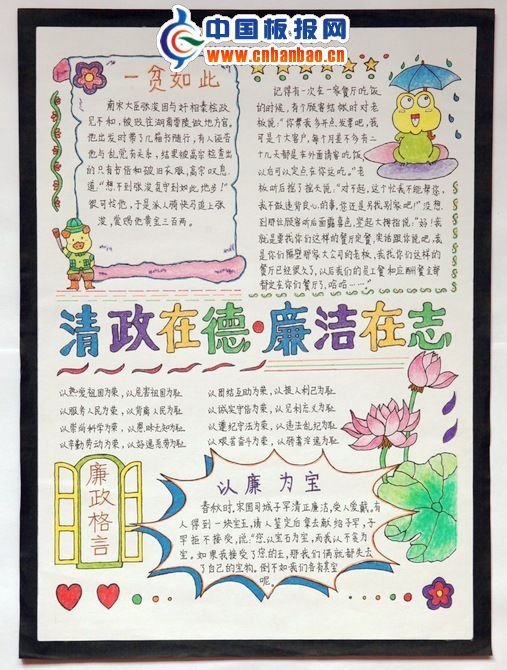 中国板报网
www.cnbanbao.cn
一贫如此
南宋大臣张浚因与奸相秦桧政
见不和,被贬往湖南零陵做地方官。
他出发时带了几箱书随行,有人诬告
他与乱党有关系,结果被高宗检查出
的只有书信和破旧衣服,高宗叹息
道:"想不到张浚贫守到如此地步!"
很可怜他,于是派人骑快马追上张
浚,赏赐他黄金三百两。
记得有一次在一家餐厅吃饭
的时候,有个顾客结帐时对老
板说:"你帮我多开点发票吧,我
可是个大客户,每个月差不多有二
十九天都是在外面请客吃饭
以后可以定点在你这吃。"老
板听后摇了摇头说:"对不起,这个忙我不能帮你,
我不做违背良心的事,您还是另找别家吧!"没想
到那位顾客听后面露喜色,竖起大拇指说:"好!我
就是要找你们这样的餐厅定餐,实话跟你说吧,我
是你们隔壁那家大公司的老板,我找你们这样的
餐厅已经很久了,以后我们的员工餐和应酬餐全部
都定在你们餐厅了,哈哈……"
清政在德·廉洁在志
以热爱祖国为荣,以危害祖国为耻
以服务人民为荣,以背离人民为耻
以崇尚科学为荣,以愚昧无知为耻
以辛勤劳动为荣,以好逸恶劳为耻
以团结互助为荣,以损人利己为耻
以诚实守信为荣,以见利忘义为耻
以遵纪守法为荣,以违法乱纪为耻
以艰苦奋斗为荣,以骄奢淫逸为耻
廉政格言
以廉为宝
春秋时,宋国司城子罕清正廉洁,受人爱戴。有
人得到一块宝玉,请人鉴定后拿去献给子罕,子
罕拒不接受,说:"您以宝石为宝,而我以不贪为
宝。如果我接受了您的玉,那我们俩就都失去
了自己的宝物。倒不如我们各有其宝
呢。